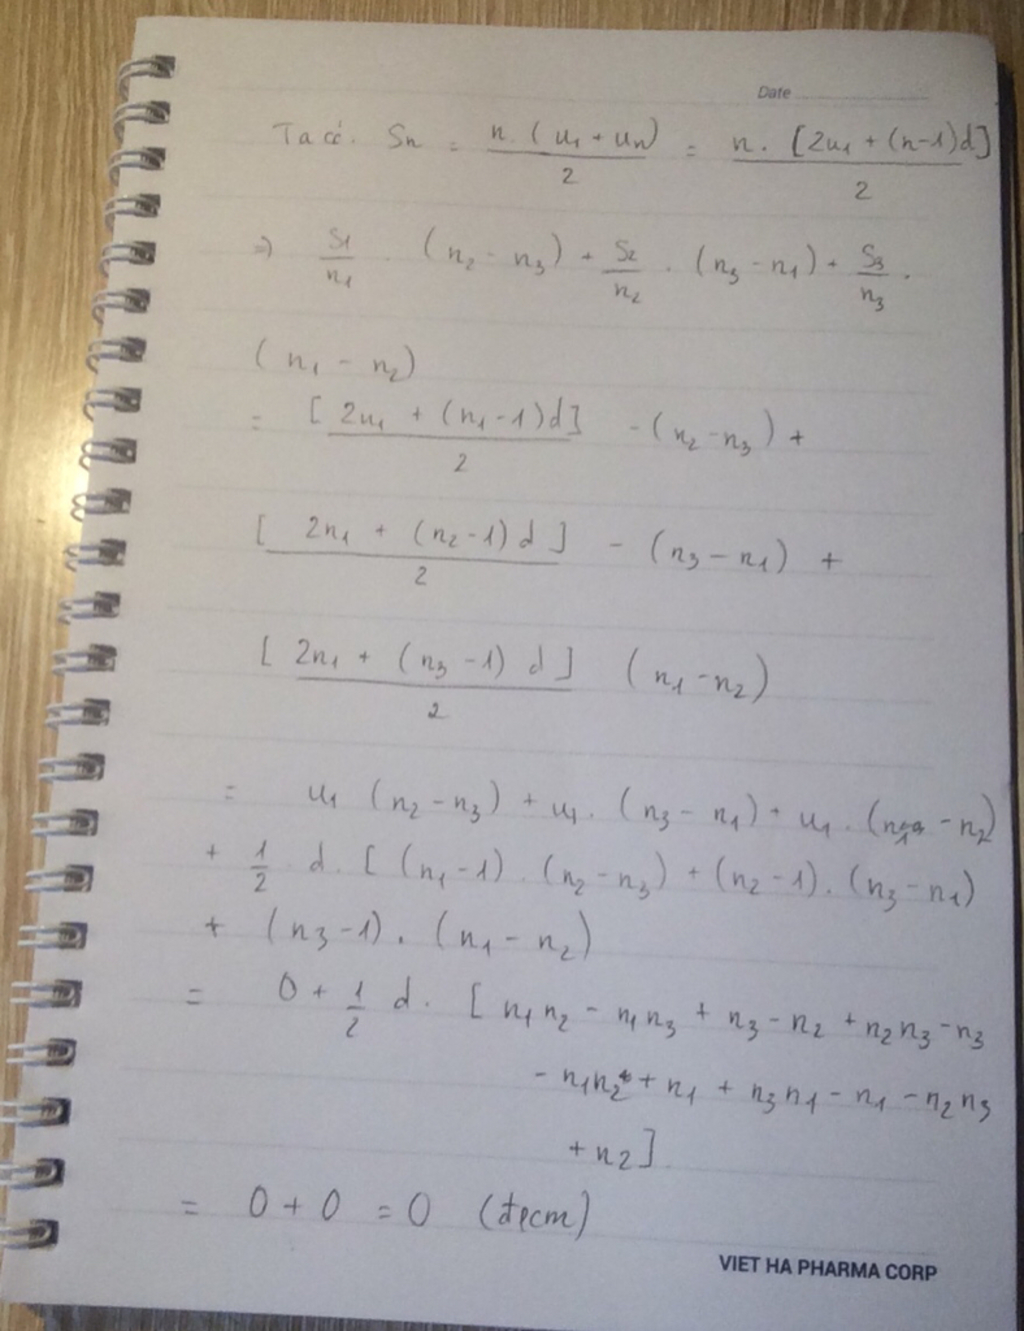 Date
Ta có. Sn = n.(u1 + un)/2 = n.[2u1 + (n-1)d]/2
=> S1/n1 . (n2 - n3) + S2/n2 . (n3 - n1) + S3/n3 .
(n1 - n2)
= [2u1 + (n1-1)d]/2 - (n2 - n3) +
[2n1 + (n2-1)d]/2 - (n3 - n1) +
[2n1 + (n3-1)d]/2 (n1 - n2)
= u1 (n2 - n3) + u1. (n3 - n1) + u1 . (n1 - n2)
+ 1/2 d. [(n1-1).(n2 - n3) + (n2-1).(n3 - n1)
+ (n3-1).(n1 - n2)
= 0 + 1/2 d. [n1n2 - n1n3 + n3 - n2 + n2n3 - n3
- n1n2 + n1 + n3n1 - n1 - n2n3
+ n2]
= 0 + 0 = 0 (đpcm)
VIET HA PHARMA CORP